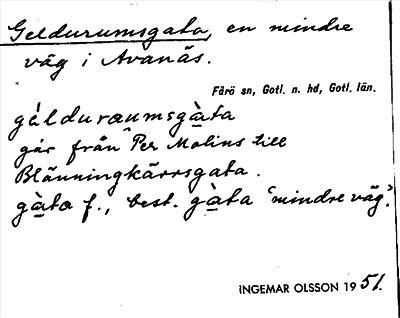 Geldurumsgata, en mindre
väg i Avanäs.
Fårö sn, Gotl. n. hd, Gotl. län.
gèlduraumsgàta
går från Per Molins till
Blänningkärrsgata.
gàta f., best. gàta 'mindre väg'.
INGEMAR OLSSON 1951.